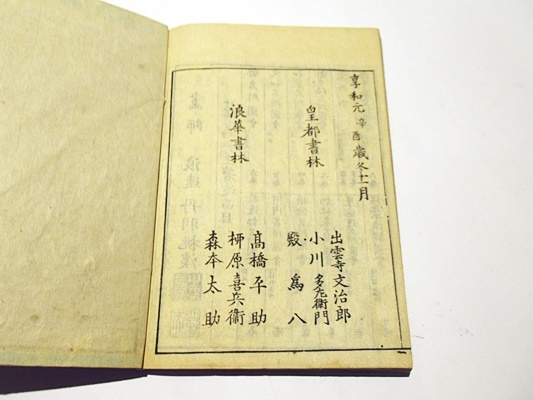 享和元辛酉歳冬十一月
皇都書林
出雲寺文治郎
小川多左衛門
殿為八
浪華書林
高橋平助
柳原喜兵衛
森本太助